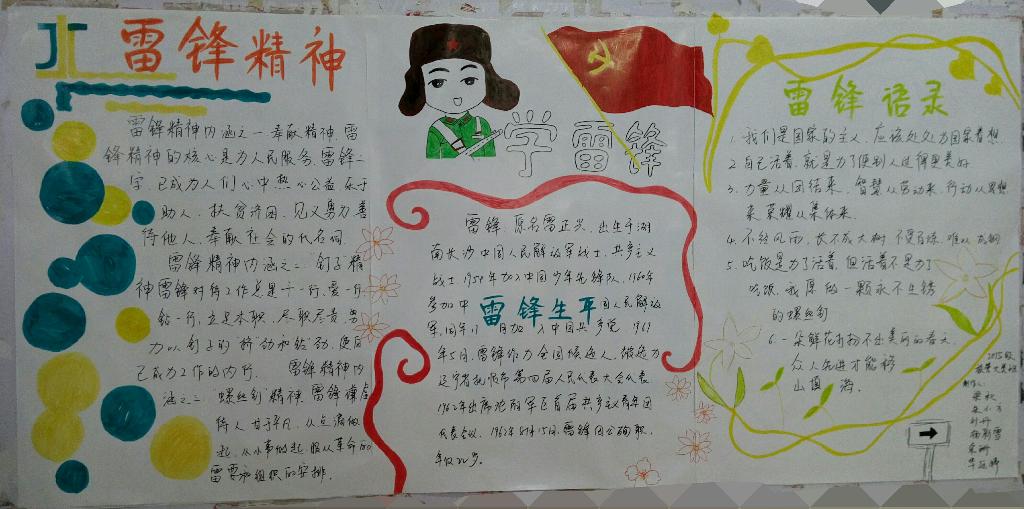 雷锋精神
雷锋精神内涵之一 奉献精神. 雷
锋精神的核心是为人民服务. 雷锋二
字, 已成为人们心中热心公益 乐于
助人, 扶贫济困, 见义勇为 善
待他人, 奉献社会的代名词.
雷锋精神内涵之二: 钉子精
神 雷锋对待工作总是干一行, 爱一行,
钻一行, 立足本职, 尽职尽责
已成为工作的内行. 雷锋精神内
涵之三: 螺丝钉精神. 雷锋谦虚
待人 甘于平凡, 从点滴做
起, 从小事做起, 服从革命的
需要和组织的安排.
学雷锋
雷锋, 原名雷正兴, 出生于湖
南长沙 中国人民解放军战士, 共产主义
战士 1954年加入中国少年先锋队, 1960年
参加中国人民解放
雷锋生平
军, 同年11月加入中国共产党. 1961
年5月, 雷锋作为全国候选人, 被选为
辽宁省抚顺市第四届人民代表大会代表
1962年出席沈阳军区首届共产主义青年团
代表会议. 1962年8月15日, 雷锋因公殉职,
年仅22岁.
雷锋语录
1. 我们是国家的主人, 应该处处为国家着想.
2. 自己活着, 就是为了使别人过得更美好.
3. 力量从团结来, 智慧从劳动来, 行动从思想
来, 荣耀从集体来.
4. 不经风雨, 长不成大树 不受百炼, 难以成钢
5. 吃饭是为了活着, 但活着不是为了
吃饭. 我愿做一颗永不生锈
的螺丝钉
6. 一朵鲜花打扮不出美丽的春天,
众人先进才能移
山填海.
2015级
制作人: